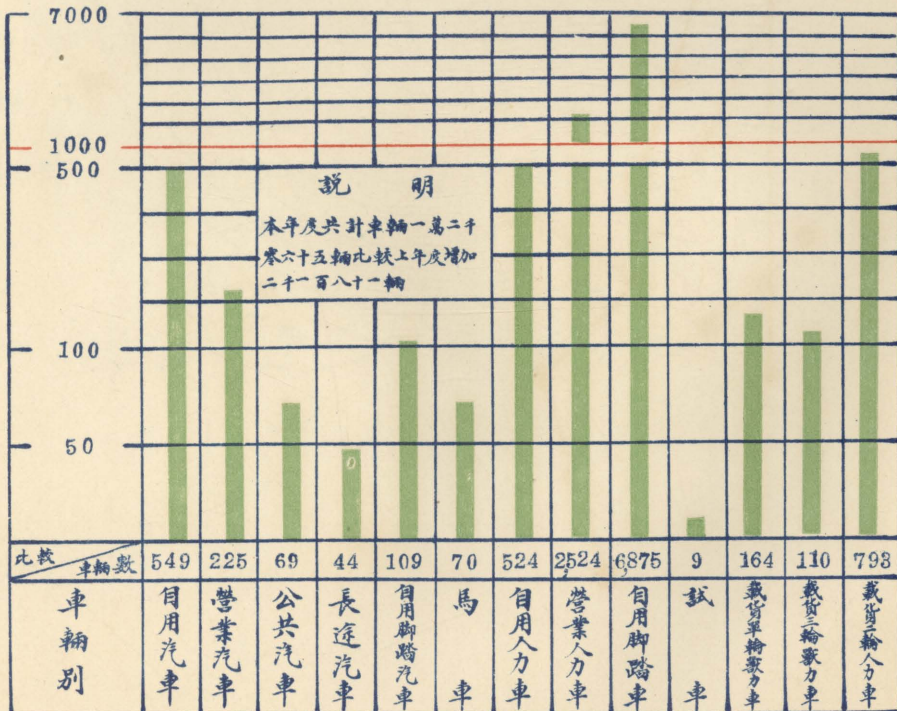 7000
1000
500
100
50
説 明
本年度共計車輛一萬二千
零六十五輛比較上年度增加
二千一百八十一輛
比較 車輛數 549 225 69 44 109 70 524 2,524 6,875 9 164 110 793
車輛別 自用汽車 營業汽車 公共汽車 長途汽車 自用脚踏汽車 馬車 自用人力車 營業人力車 自用脚踏車 試車 載货單輪獸力車 載货三輪獸力車 載货二輪人力車